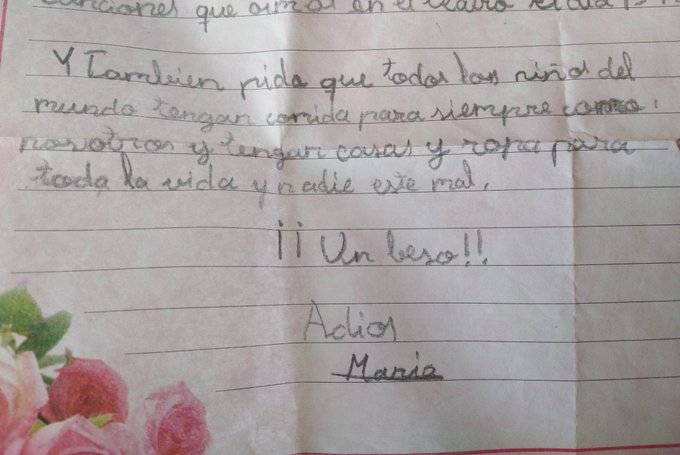 canciones que oimos en el teatro el dia
Y Tambien pido que todos los niños del
mundo tengan comida para siempre como
nosotros y tengan casas y ropa para
toda la vida y nadie este mal.
¡¡ Un beso!!
Adios
Maria